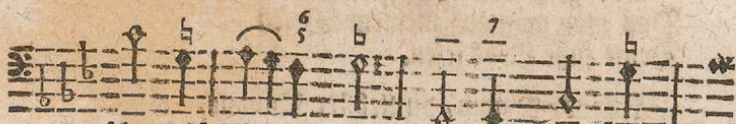 6
♮ 5 ♭ — 7 ♮